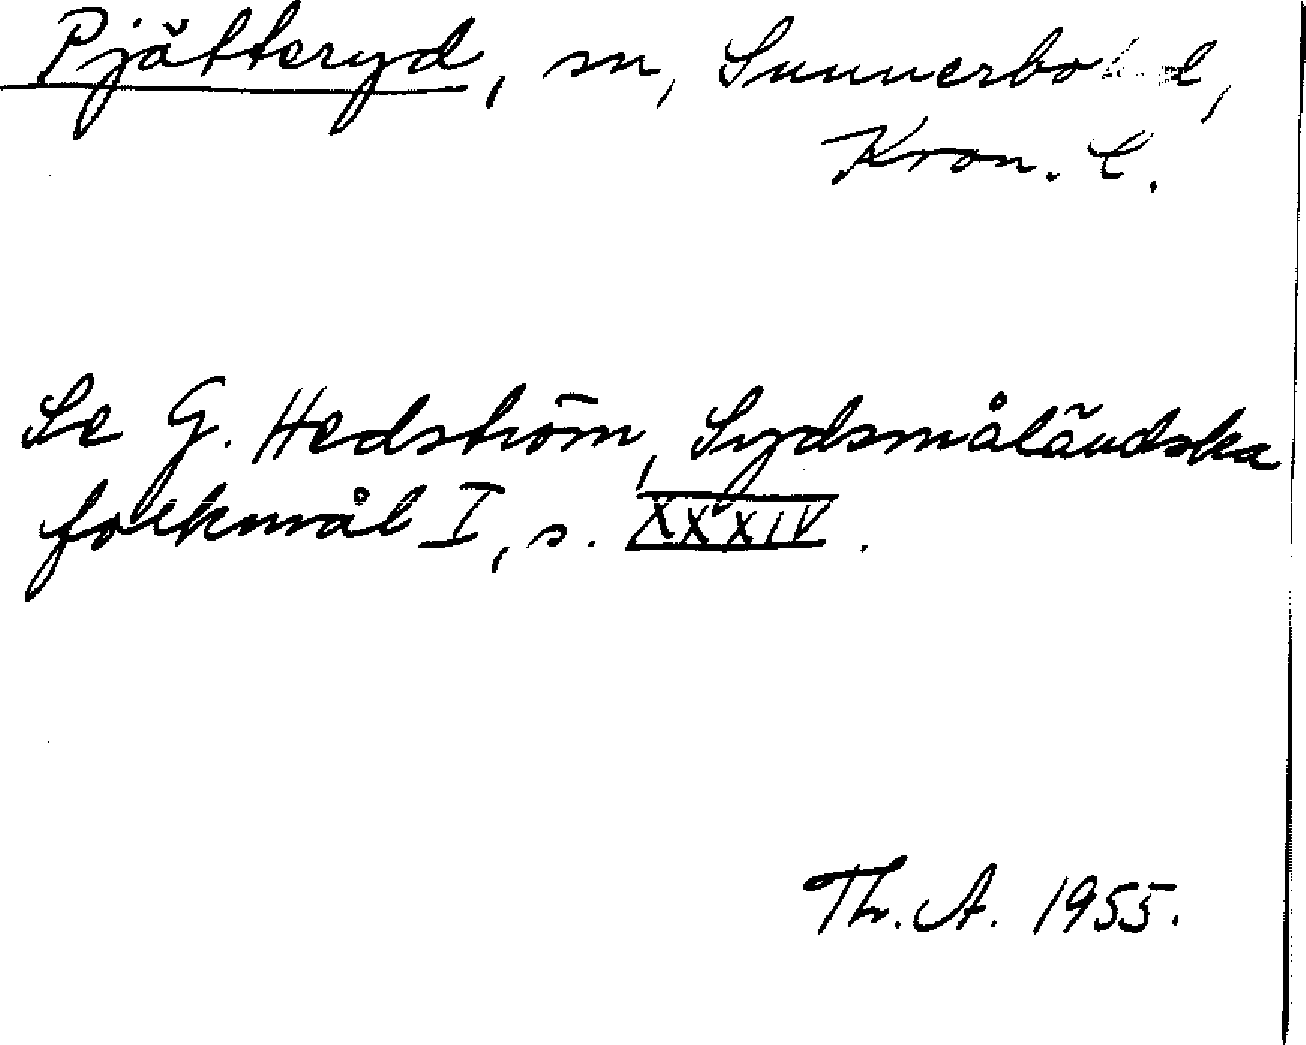 Pjätteryd, sn, Sunnerbo hd,
Kron. l.
Se G. Hedström, Sydsmåländska
folkmål I, s. XXXIV.
Th. A. 1955.